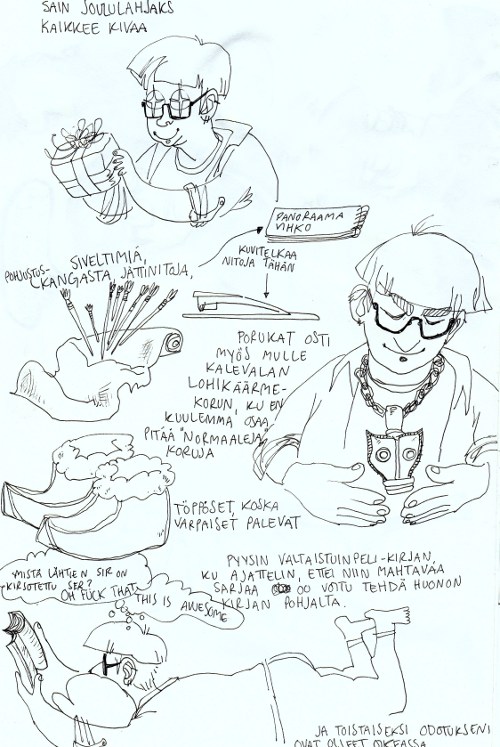 SAIN JOULULAHJAKS
KAIKKEE KIVAA
PANORAAMA
VIHKO
SIVELTIMIÄ,
POHJUSTUS-
KANGASTA, JÄTTINITOJA,
KUVITELKAA
NITOJA TÄHÄN
PORUKAT OSTI
MYÖS MULLE
KALEVALAN
LOHIKÄÄRME-
KORUN, KU EN
KUULEMMA OSAA
PITÄÄ "NORMAALEJA"
KORUJA
TÖPPÖSET, KOSKA
VARPAISET PALEVAT
PYYSIN VALTAISTUINPELI-KIRJAN,
KU AJATTELIN, ETTEI NIIN MAHTAVAA
SARJAA OO VOITU TEHDÄ HUONON
KIRJAN POHJALTA.
MISTÄ LÄHTIEN SIR ON
KIRJOTETTU SER?
OH FUCK THAT,
THIS IS AWESOME
JA TOISTAISEKSI ODOTUKSENI
OVAT OLLEET OIKEASSA